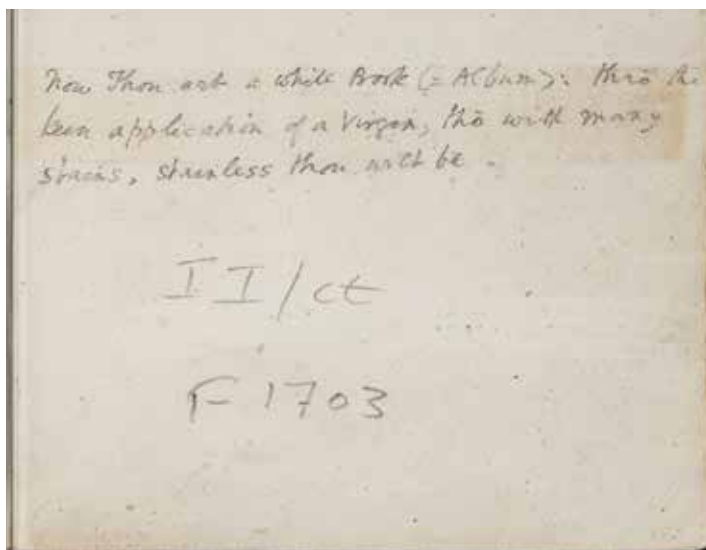 Now Thou art a white Book (= Album): thro the
keen application of a Virgin, tho with many
stains, stainless thou wilt be.
II/ct
F 1703